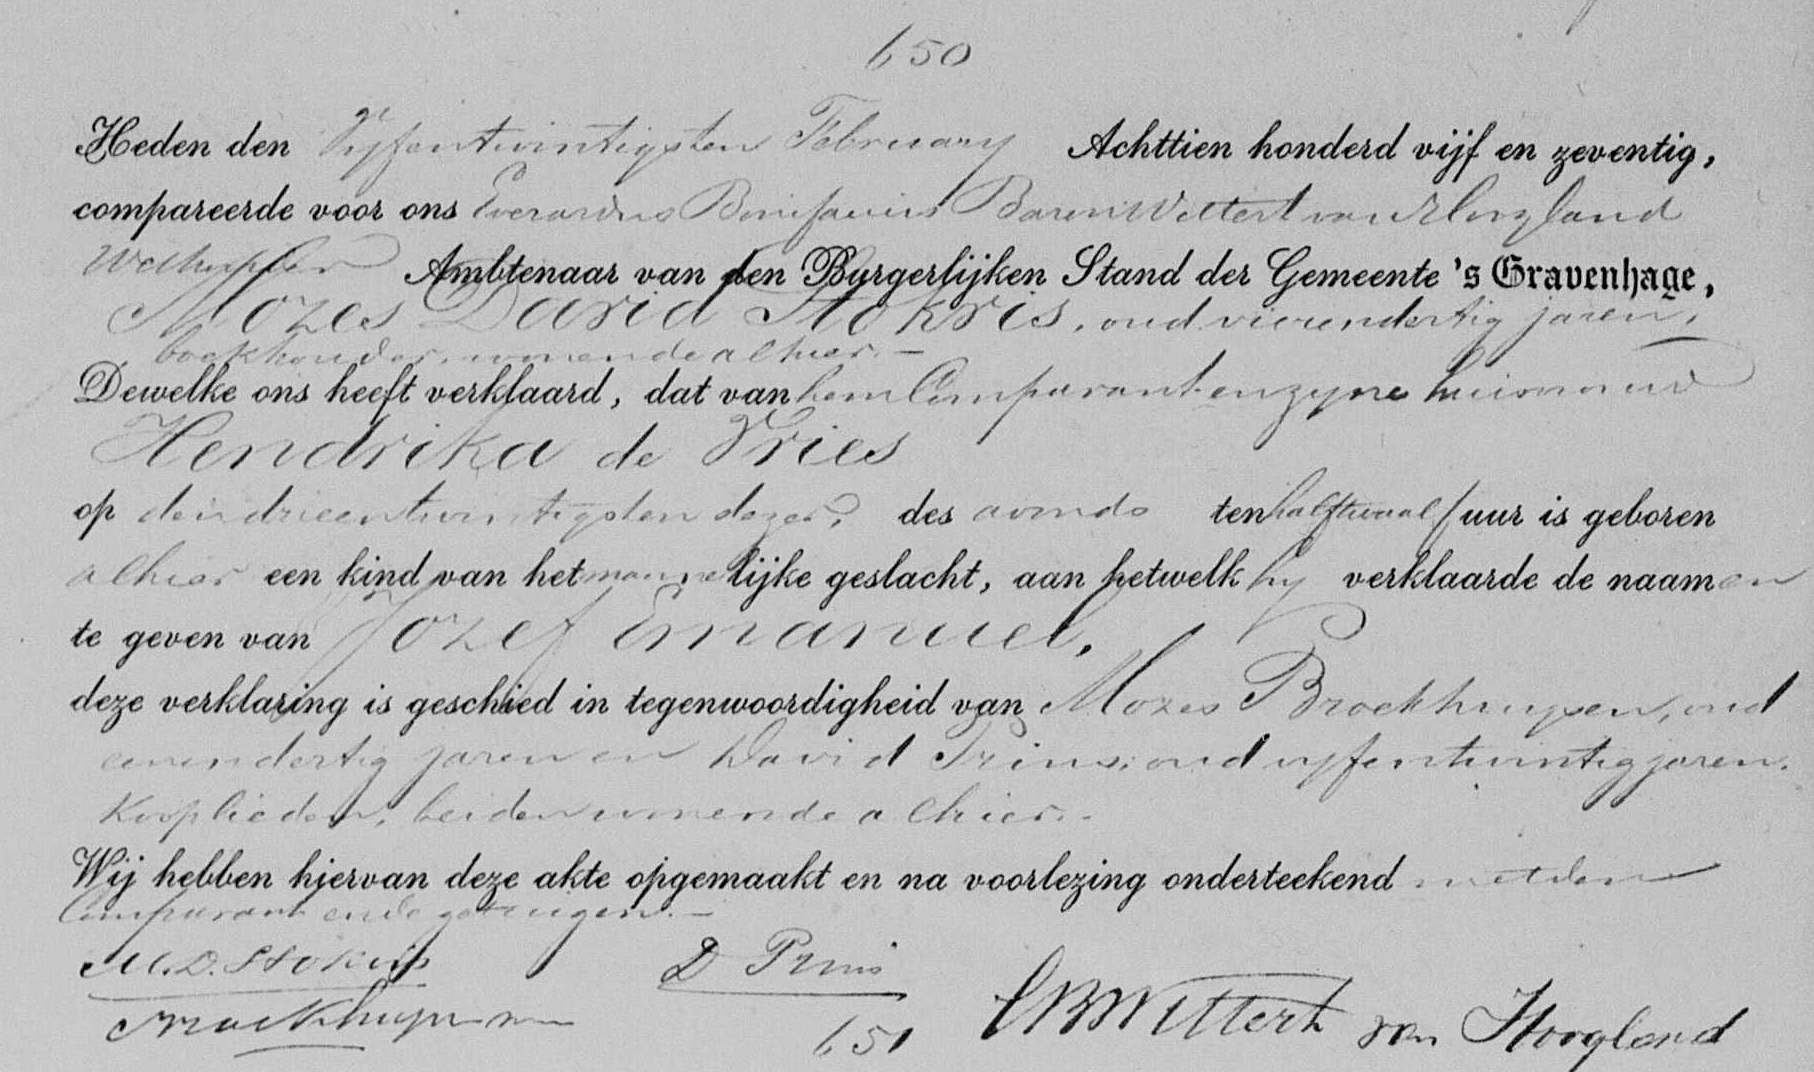 650
Heden den Vyfentwintigsten February Achttien honderd vijf en zeventig,
compareerde voor ons Everardus Bonifacius Baron Wittert van Hoogland
Wethouder Ambtenaar van den Burgerlijken Stand der Gemeente 's Gravenhage,
Mozes David Stokvis, oud vierendertig jaren,
boekhouder, wonende alhier.—
Dewelke ons heeft verklaard, dat van hem Comparant en zyne huisvrouw
Hendrika de Vries
op den drieentwintigsten dezer, des avonds ten half twaalf uur is geboren
alhier een kind van het mannelijke geslacht, aan hetwelk hy verklaarde de naamen
te geven van Jozef Emanuel.
deze verklaring is geschied in tegenwoordigheid van Mozes Broekhuysen, oud
eenendertig jaren en David Prins, oud vyfentwintig jaren.
Kooplieden, beiden wonende alhier.—
Wij hebben hiervan deze akte opgemaakt en na voorlezing onderteekend met den
Comparant en de getuigen.—
M. D. Stokvis D Prins
Broekhuysen EBWittert van Hoogland
651